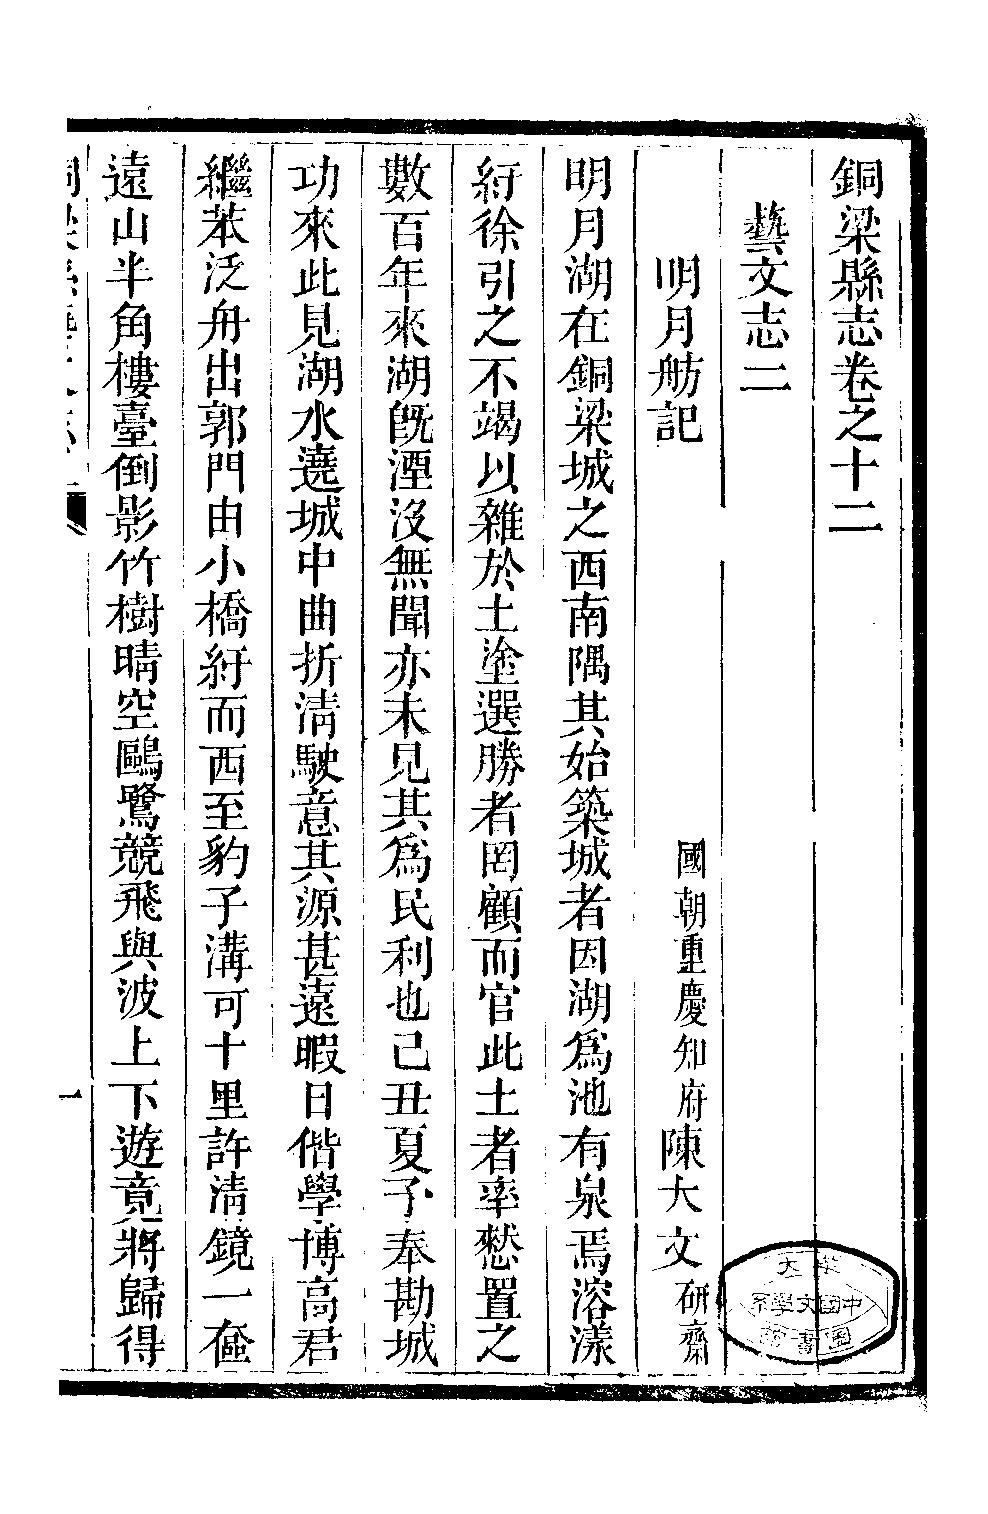 銅梁縣志卷之十二
藝文志二
明月舫記
國朝重慶知府陳大文研齋
明月湖在銅梁城之西南隅其始築城者因湖爲池有泉焉溶漾
紆徐引之不竭以雜於土塗選勝者罔顧而官此土者率愁置之
數百年來湖旣湮沒無聞亦未見其爲民利也己丑夏予奉勘城
功來此見湖水遶城中曲折淸駛意其源甚遠暇日偕學博高君
繼苯泛舟出郭門由小橋紆而西至豹子溝可十里許淸鏡一奩
遠山半角樓臺倒影竹樹晴空鷗鷺競飛與波上下遊竟將歸得
一